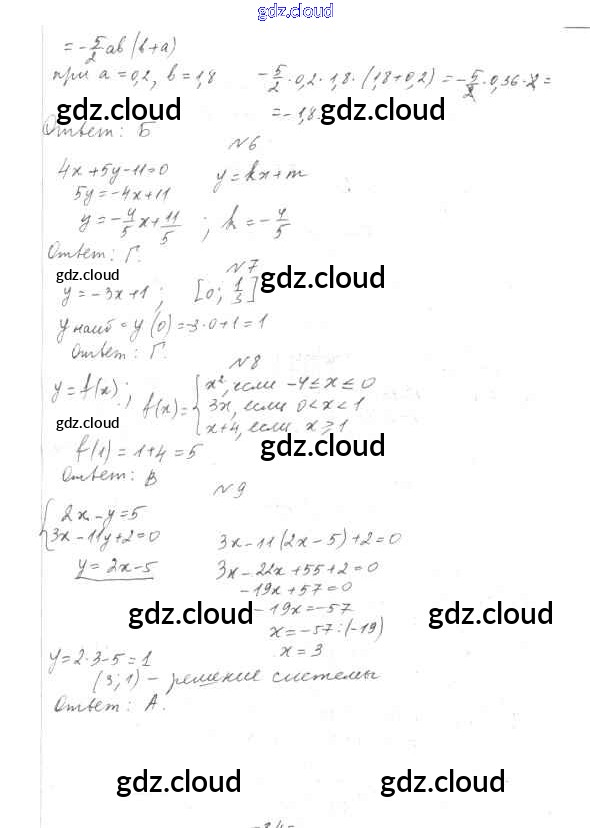 gdz.cloud
= -5/2 ab (b+a)
при a = 0,2, b = 1,8   -5/2 · 0,2 · 1,8 · (1,8+0,2) = -5/2 · 0,36 · 2 =
= -1,8.
gdz.cloud gdz.cloud
Ответ: Б
№6
4x+5y-11=0   y=kx+m
5y=-4x+11
y = -4/5 x + 11/5 ; k = -4/5
Ответ: Г.
№7
gdz.cloud gdz.cloud
y = -3x+1 ; [0; 1/3]
y наиб = y(0) = -3·0+1 = 1
Ответ: Г.
№8
y=f(x); f(x)= { x², если -4 ≤ x ≤ 0
3x, если 0 < x < 1
x+4, если x ≥ 1
gdz.cloud gdz.cloud
f(1) = 1+4 = 5
Ответ: В
№9
{ 2x - y = 5
3x - 11y + 2 = 0   3x - 11(2x - 5) + 2 = 0
y = 2x - 5   3x - 22x + 55 + 2 = 0
-19x + 57 = 0
gdz.cloud gdz.cloud
-19x = -57
x = -57 : (-19)
x = 3
y = 2·3-5 = 1
(3; 1) - решение системы
Ответ: А.
gdz.cloud gdz.cloud